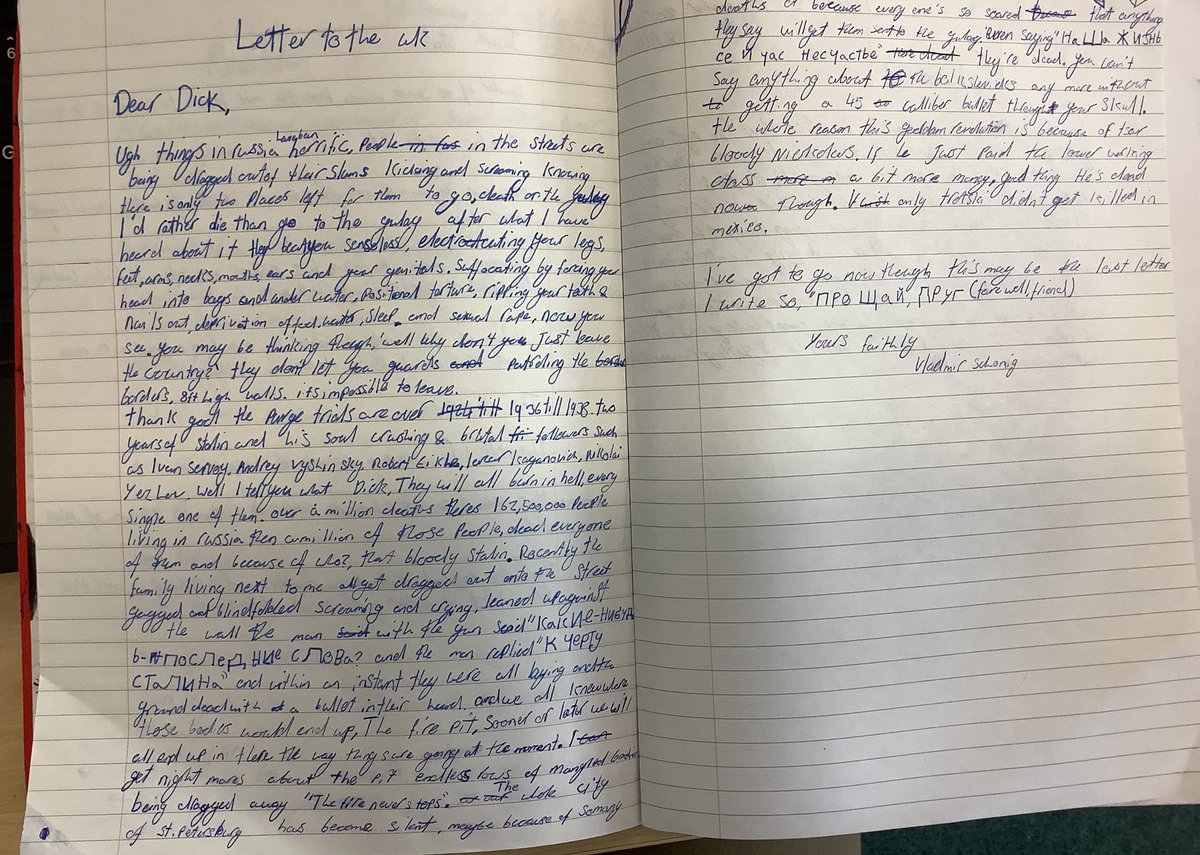 Letter to the uk
Dear Dick,
Ugh things in russia horrific, People in the streets are
being dragged out of their slums kicking and screaming knowing
there is only two Places left for them to go, death or the gulag
I'd rather die than go to the gulag after what I have
heard about it they beat you senseless, electrocuting your legs,
feet, arms, necks, mouths, ears and your genitals. Suffocating by forcing your
head into bags and under water, Positional torture, ripping your teeth &
nails out, deprivation of food, water, sleep and sexual rape, now you
see. you may be thinking though, well why don't you Just leave
the country? they don't let you guards patroling the
borders, 8ft high walls. its impossible to leave.
thank god the Purge trials are over 1936 till 1938. two
years of stalin and his soul crushing & brutal followers such
as Ivan Servoy, Andrey Vyshinsky, Robert Eikhe, lazar kaganovich, Nikolai
Yezhov, well I tell you what Dick, They will all burn in hell, every
single one of them. over a million deaths theres 162,500,000 People
living in russia then a million of those People, dead everyone
of them and because of who?, that bloody Stalin. Recently the
family living next to me all get dragged out onto the street
gagged and blindfolded screaming and crying, leaned up against
the wall the man with the gun said "Какие-нибуд
ь-последние слова? and the man replied "К черту
Сталина" and within an instant they were all laying on the
ground dead with a bullet in their head. and we all knew where
those bodies would end up, The fire pit, sooner or later we will
all end up in there the way things are going at the moment. I
get night mares about the pit endless rows of mangled bodies
being dragged away "The fire never stops". The whole city
of St. Petersburg has become silent, maybe because of so many
deaths or because every one's so scared that anything
they say will get them sent to the gulag. even saying "наша жизнь
се и уас несчастье" they're dead. you can't
say anything about the bolishevicks any more without
getting a 45 calliber bullet through your skull.
the whole reason this goddam revolution is because of tsar
bloody Nickolars. If he Just Paid the lower working
class a bit more money, good thing He's dead
now though. only trotsia didn't get killed in
mexico.
I've got to go now though this may be the last letter
I write so, "Прощай, друг (farewell, friend)
Yours faithly
Vladmir Schonig